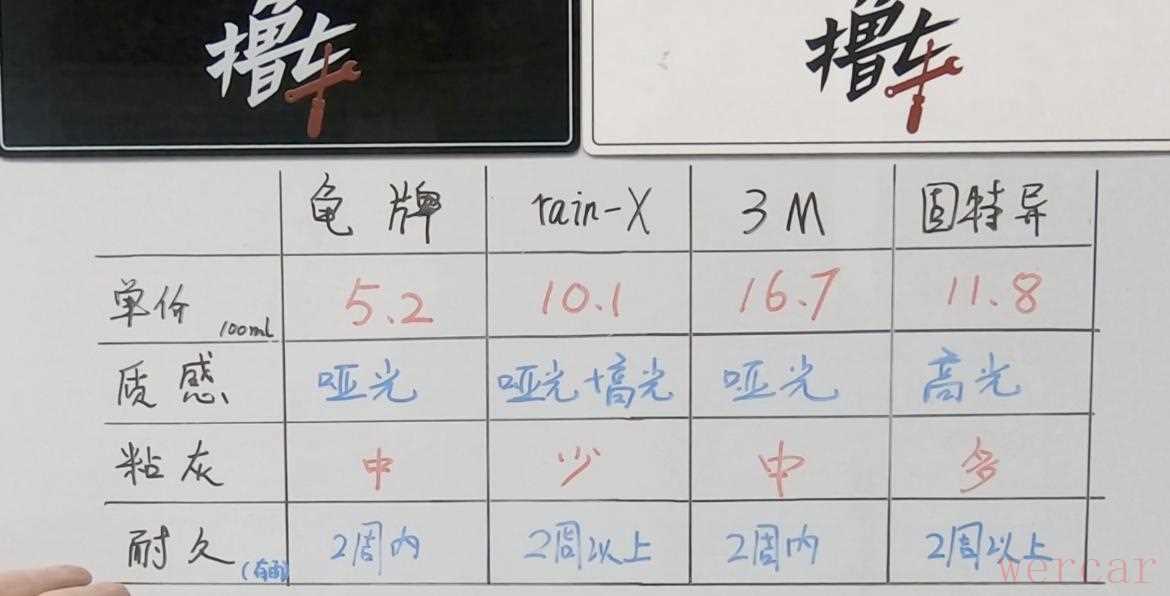 撸车
撸车
龟牌 rain-X 3M 固特异
单价 100ml 5.2 10.1 16.7 11.8
质感 哑光 哑光+高光 哑光 高光
粘灰 中 少 中 多
耐久 2周内 2周以上 2周内 2周以上
wercar